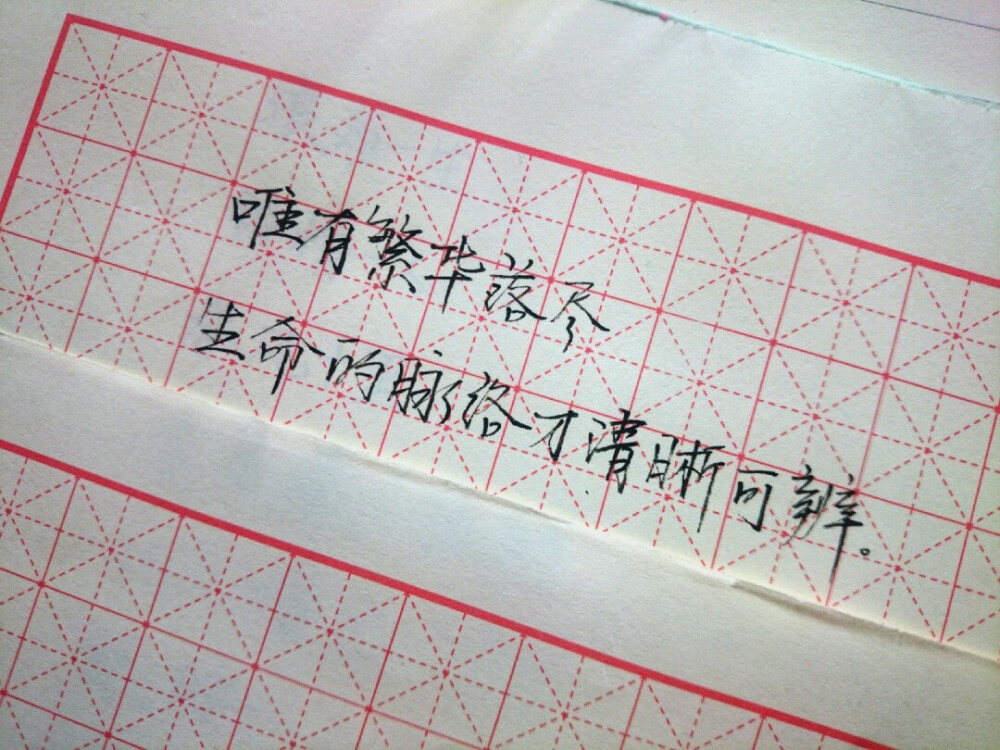 唯有繁华落尽
生命的脉络才清晰可辨。